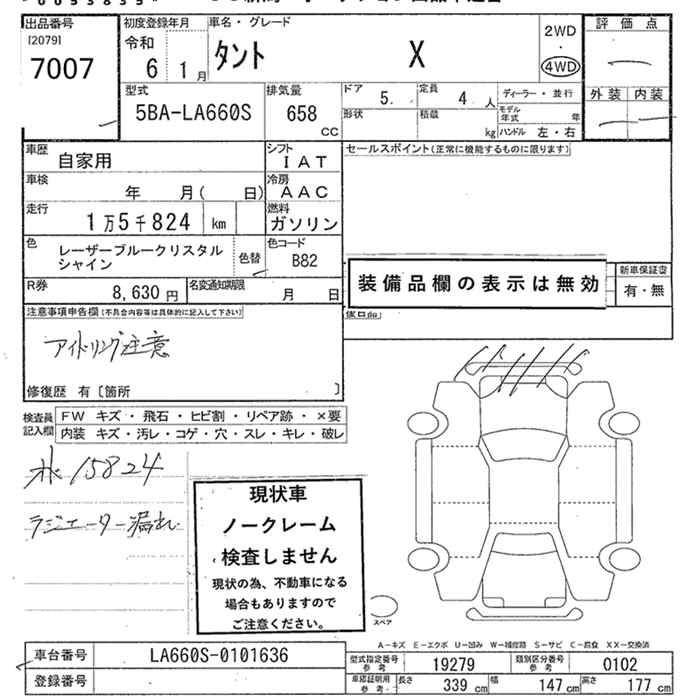 出品番号
[2079]
7007
初度登録年月
令和
6 1月
車名・グレード
タント X
2WD
・
4WD
評価点
外装 内装
型式
5BA-LA660S
排気量
658
CC
ドア 5.
定員 4 人
形状
積載 kg
ディーラー・並行
モデル年式 年
ハンドル 左・右
車歴 自家用
シフト IAT
車検 年 月( 日)
冷房 AAC
走行 1万5千824 km
燃料 ガソリン
色 レーザーブルークリスタル
シャイン
色替
色コード
B82
R券 8,630 円
名変通知期限 月 日
セールスポイント(正常に機能するものに限ります)
装備品欄の表示は無効
新車保証書
有・無
注意事項申告欄(不具合内容等は具体的に記入して下さい)
アイドリング注意
修復歴 有〔箇所 〕
検査員
記入欄
FW キズ・飛石・ヒビ割・リペア跡・×要
内装 キズ・汚レ・コゲ・穴・スレ・キレ・破レ
15824
ラジエーター漏れ
現状車
ノークレーム
検査しません
現状の為、不動車になる
場合もありますので
ご注意ください。
スペア
A-キズ E-エクボ U-凹み W-補修跡 S-サビ C-腐食 XX-交換済
車台番号 LA660S-0101636
登録番号
型式指定番号
参考
19279
類別区分番号
参考
0102
車庫証明用
参考
長さ 339 cm
幅 147 cm
高さ 177 cm